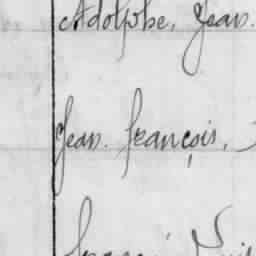 Adolphe, Jean.
Jean. François,